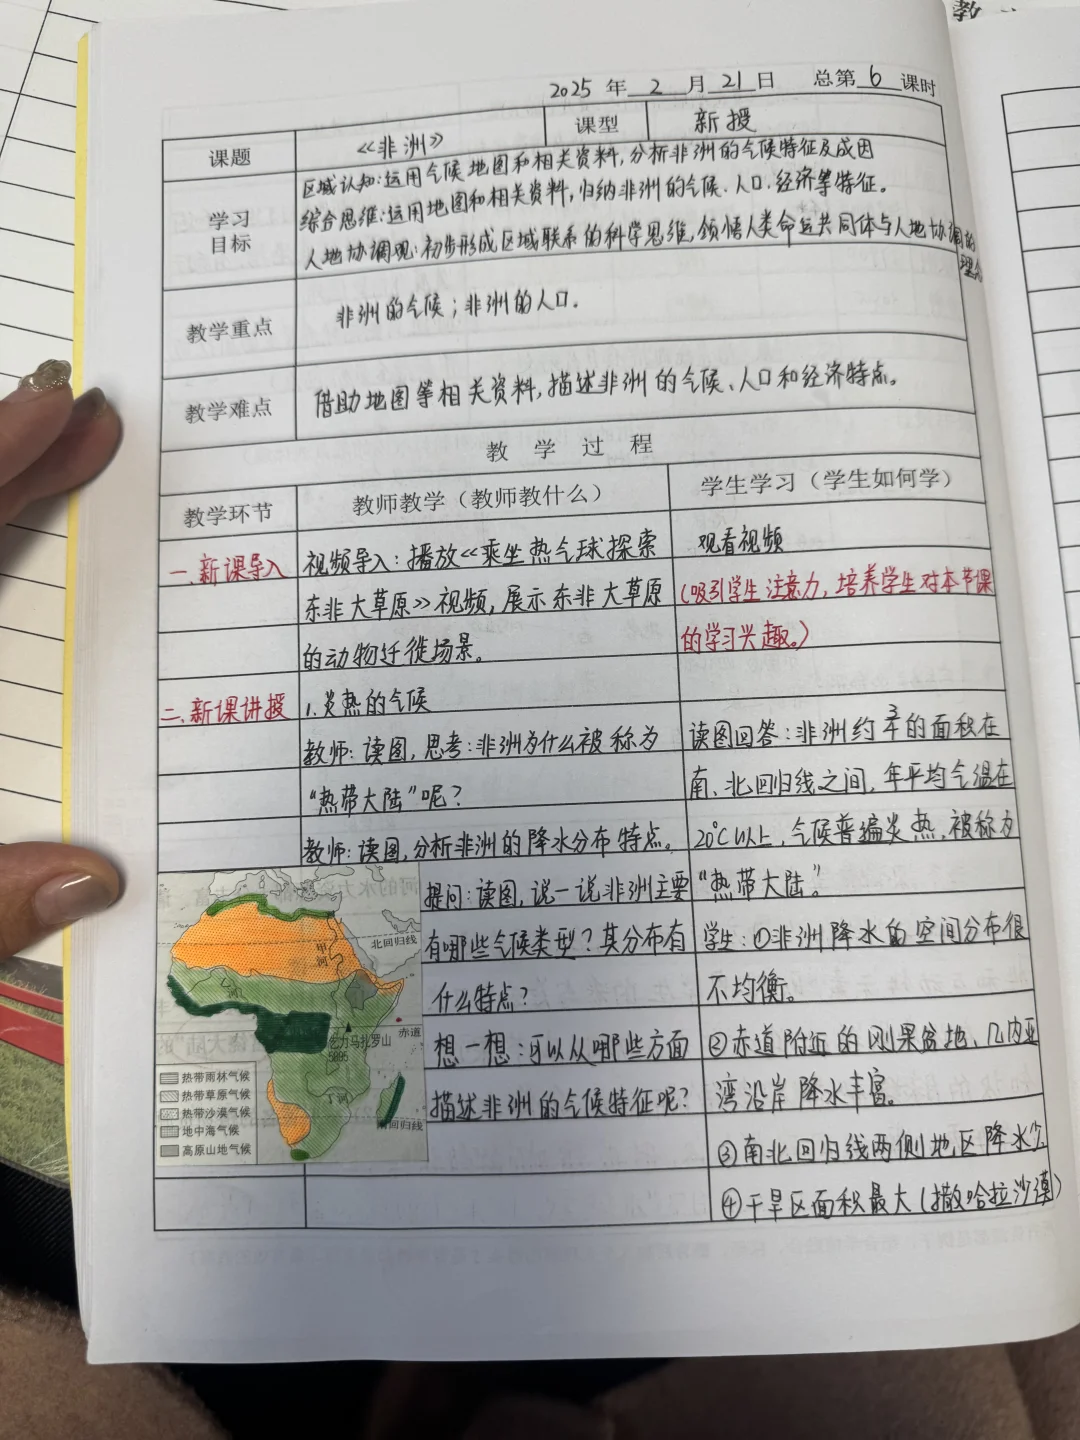 教
2025 年 2 月 21 日 总第 6 课时
课题 《非洲》 课型 新授
学习目标
区域认知:运用气候地图和相关资料,分析非洲的气候特征及成因
综合思维:运用地图和相关资料,归纳非洲的气候、人口、经济等特征。
人地协调观:初步形成区域联系的科学思维,领悟人类命运共同体与人地协调的
理念
教学重点 非洲的气候;非洲的人口.
教学难点 借助地图等相关资料,描述非洲的气候、人口和经济特点。
教 学 过 程
教学环节 教师教学(教师教什么) 学生学习(学生如何学)
一.新课导入 视频导入:播放《乘坐热气球探索 观看视频
东非大草原》视频,展示东非大草原 (吸引学生注意力,培养学生对本节课
的动物迁徙场景。 的学习兴趣。)
二.新课讲授 1.炎热的气候
教师:读图,思考:非洲为什么被称为 读图回答:非洲约3/4的面积在
“热带大陆”呢? 南、北回归线之间,年平均气温在
教师:读图,分析非洲的降水分布特点。 20℃以上,气候普遍炎热,被称为
提问:读图,说一说非洲主要 “热带大陆”。
有哪些气候类型?其分布有 学生:①非洲降水的空间分布很
什么特点? 不均衡。
想一想:可以从哪些方面 ②赤道附近的刚果盆地、几内亚
描述非洲的气候特征呢? 湾沿岸降水丰富。
③南北回归线两侧地区降水少
④干旱区面积最大(撒哈拉沙漠)
北回归线
赤道
乞力马扎罗山
5895
南回归线
热带雨林气候
热带草原气候
热带沙漠气候
地中海气候
高原山地气候